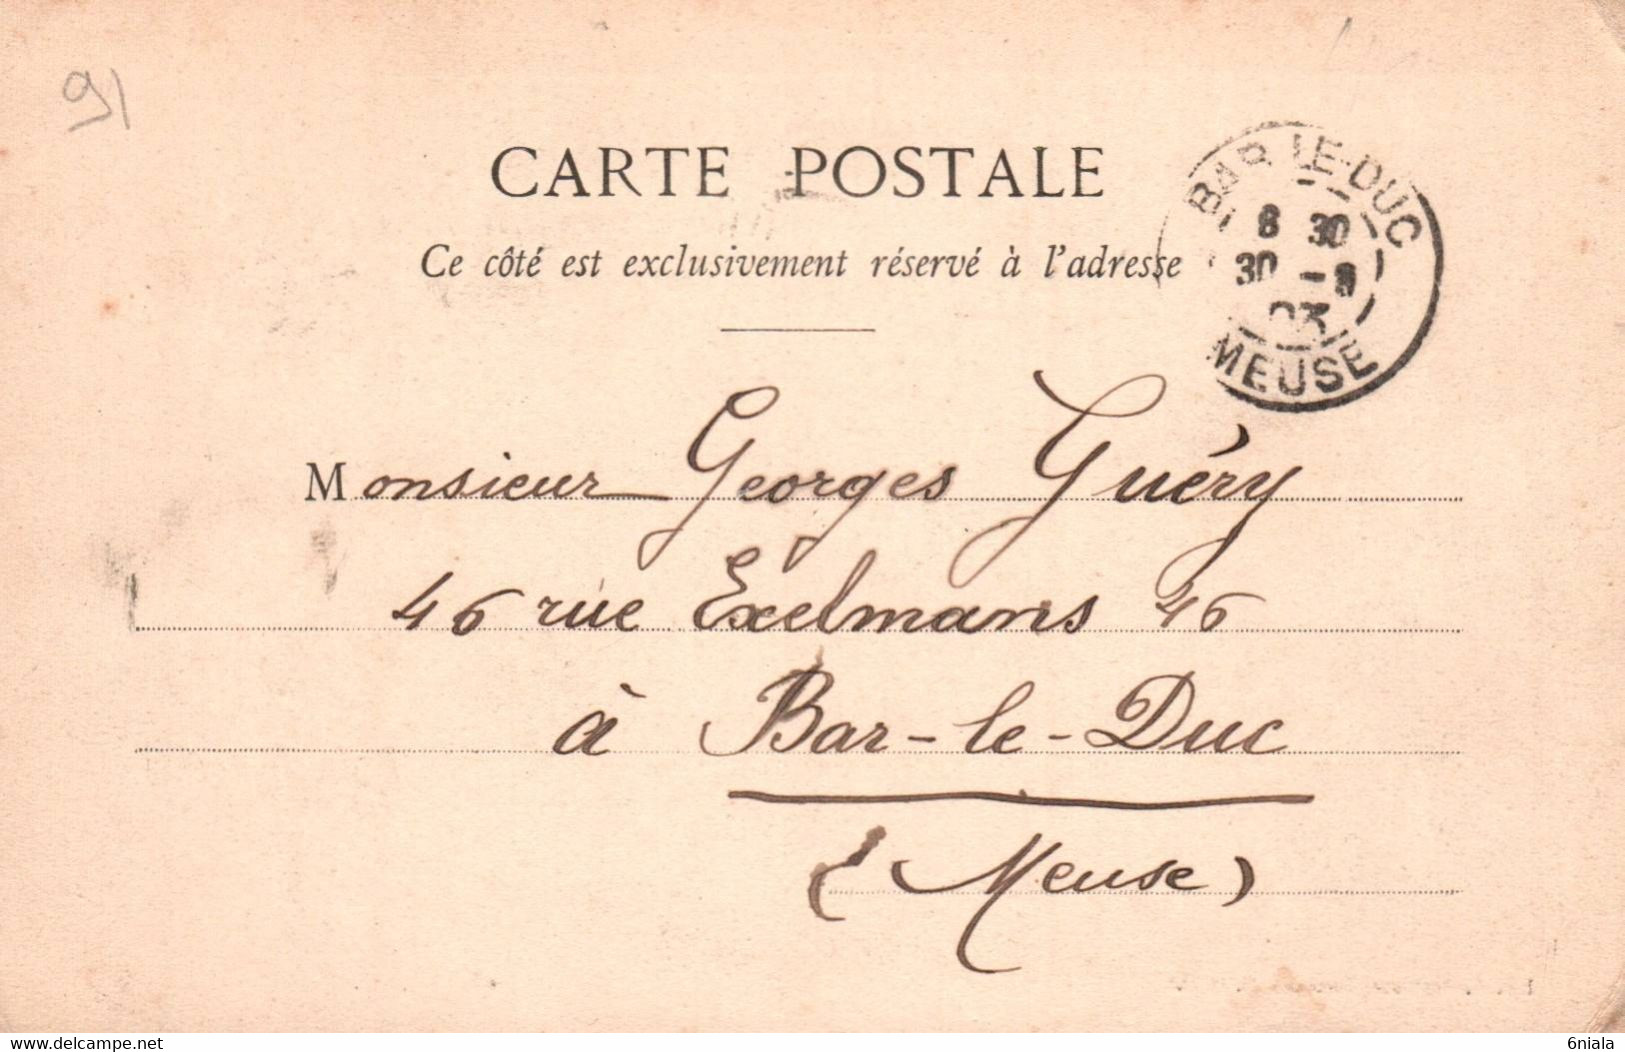 91
CARTE POSTALE
Ce côté est exclusivement réservé à l'adresse
BAR-LE-DUC
8 30
30 -8
03
MEUSE
Monsieur Georges Guéry
46 rue Exelmans 46
à Bar-le-Duc
(Meuse)
www.delcampe.net
6niala